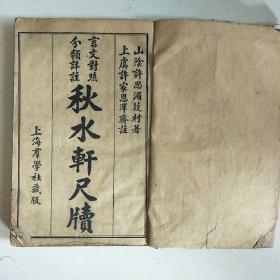 山陰許思湄葭村著
上虞許家恩澤齋註
言文對照
分類詳註
秋水軒尺牘
上海羣學社藏版